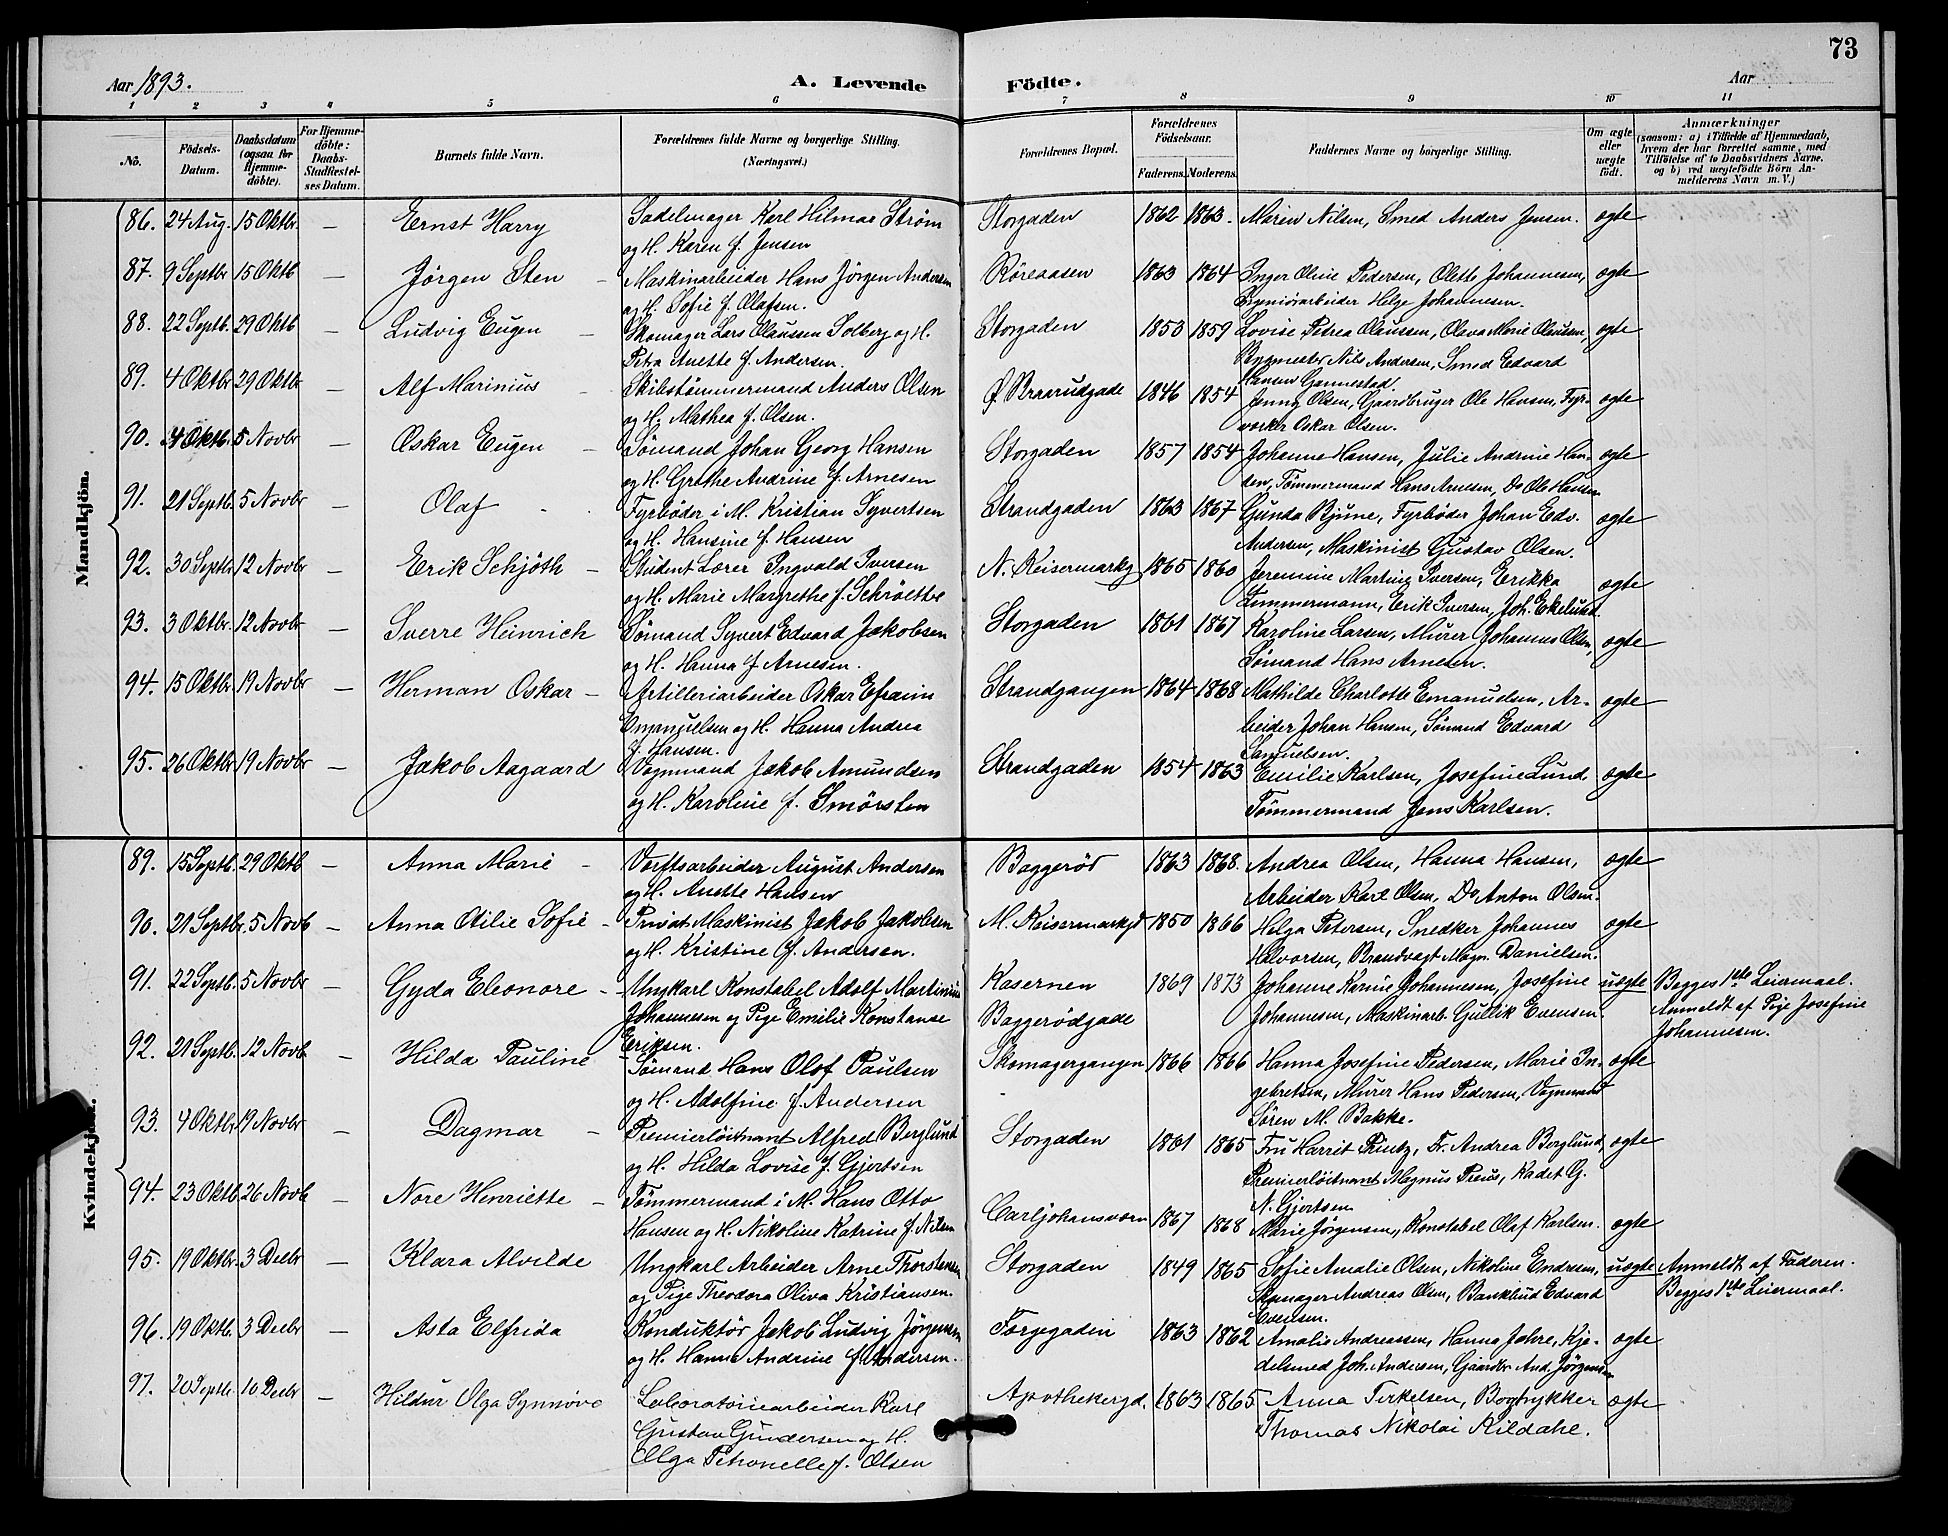 73
Aar 1893.
A. Levende
Födte.
Aar
1 2 3 4 5 6 7 8 9 10 11
No.
Födsels-Datum.
Daabsdatum (ogsaa for Hjemme-döbte).
For Hjemme-döbte: Daabs-Stadfæstel-ses Datum.
Barnets fulde Navn.
Forældrenes fulde Navne og borgerlige Stilling. (Næringsvei.)
Forældrenes Bopæl.
Forældrenes Födselsaar.
Faderens. Moderens.
Faddernes Navne og borgerlige Stilling.
Om ægte eller uægte födt.
Anmærkninger
(saasom: a) i Tilfælde af Hjemmedaab,
hvem der har forrettet samme, med
Tilföielse af to Daabsvidners Navne.
og b) ved uægtefödte Börn An-
melderens Navn m.V.)
Mandkjön.
86. 24 Aug. 15 Oktbr. — Ernst Harry Sadelmager Karl Hilmar Ström Storgaden 1862 1863. Maren Nilsen, Smed Anders Jensen. ægte
og H. Karen f. Jensen
87. 9 Septbr 15 Oktb — Jörgen Sten — Maskinarbeider Hans Jörgen Andersen Röreaasen 1863 1864 Inger Oline Pedersen, Olette Johannesen, ægte
og H. Sofie f. Olafsen. Johannesen.
88. 22 Septb. 29 Oktb — Ludvig Eugen — Skomager Lars Olaussen Solberg og H. Storgaden 1853 1859 Lovise Petrea Olaussen, Olava Marie Olaussen, ægte
Petra Anette f. Andersen. Nils Andersen, Smed Edvard
Hansen Gannestad.
89. 4 Oktbr 29 Oktbr — Alf Marinius — Skibstömmermand Anders Olsen Ø. Braarudgade 1846 1854 Jenny Olsen, Gaardbruger Ole Hansen, Fyr- ægte
og H. Mathea f. Olsen. værker Oskar Olsen.
90. 4 Oktb. 5 Novbr — Oskar Eugen — Sömand Johan Georg Hansen Storgaden 1857 1854 Johanne Hansen, Julie Andrine Han- ægte
og H. Grethe Andrine f. Arnesen sen, Tömmermand Hans Arnesen, Do Ole Hansen
91. 21 Septb. 5 Novbr Olaf Fyrböder i M. Kristian Syvertsen Strandgaden 1863 1867 Gunda Bjune, Fyrböder Johan Edv. ægte
og H. Hansine f. Hansen Andersen, Maskinist Gustav Olsen.
92. 30 Septbr. 12 Novbr — Erik Schjöth — Student Lærer Ingvald Iversen N. Keisermarkg 1865 1860 Jeremine Martine Iversen, Erikka ægte
og H. Marie Margrethe f. Schröetter Zimmermann, Erik Iversen, Joh. Ekelund.
93. 3 Oktbr. 12 Novbr — Sverre Heinrich Sömand Syvert Edvard Jakobsen Storgaden 1861 1867 Karoline Larsen, Murer Johannes Olsen, ægte
og H. Hanna f Arnesen. Sömand Hans Arnesen.
94. 15 Oktbr. 19 Novbr — Herman Oskar — Artilleriarbeider Oskar Efraim Strandgangen 1864 1868 Mathilde Charlotte Emanuelsen, Ar- ægte
Emanuelsen og H. Hanna Andrea beider Johan Hansen, Sömand Edvard
f. Hansen. Samuelsen.
95. 26 Oktbr. 19 Novbr — Jakob Aagaard Vognmand Jakob Amundsen Strandgaden 1854 1863 Emilie Karlsen, Josefine Lund ægte
og H. Karoline f. Smörsten Tömmermand Jens Karlsen.
Kvindekjön.
89. 15 Septb. 29 Oktb — Anna Marie — Verftsarbeider August Andersen Baggeröd 1863 1868. Andrea Olsen, Hanna Hansen, ægte
og H. Anette Hansen Arbeider Karl Olsen, Do Anton Olsen.
90. 21 Septbr. 5 Novb — Anna Otilie Sofie — Privat Maskinist Jakob Jakobsen M. Keisermarkgd 1850 1866 Helga Petersen, Snedker Johannes ægte
og H. Kristine f. Andersen. Halvorsen, Brandvagt Magn. Danielsen.
91. 22 Septb. 5 Novbr — Gyda Eleonore — Ungkarl Konstabel Adolf Martinius Kasernen 1869 1873 Johanne Karine Johannesen, Josefine uægte Begges 1ste Leiermaal.
Johannesen og Pige Emilie Konstanse Baggerödgade Johannesen, Maskinarb. Gullik Evensen. Anmeldt af Pige Josefine
Eriksen. Johannesen.
92. 21 Septb. 12 Novb — Hilda Pauline — Sömand Hans Olaf Paulsen Skomagergangen 1866 1866 Hanna Josefine Pedersen, Marie In- ægte
og H. Adolfine f. Andersen gebretsen, Murer Hans Pedersen, Vognmand
Sören M. Bakke.
93. 4 Oktbr. 19 Novbr — Dagmar — Premierlöitnant Alfred Berglund Storgaden 1861 1865 Fru Harrit Printz, Fr. Andrea Berglund, ægte
og H. Hilda Lovise f. Gjertsen Premierlöitnant Magnus Preus, Kadet G.
N. Gjertsen
94. 23 Oktb. 26 Novb — Nore Henriette — Tömmermand i M. Hans Otto Carljohansværn 1867 1868 Marie Jörgensen, Konstabel Olaf Karlsen. ægte
Hansen og H. Nikoline Katrine f. Nilsen
95. 19 Oktbr. 3 Decbr — Klara Alvilde Ungkarl Arbeider Arne Thorstensen Storgaden 1849 1865 Sofie Amalie Olsen, Nikoline Endresen, uægte Anmeldt af Faderen.
og Pige Theodora Oliva Kristiansen. Skomager Andreas Olsen, Edvard Begges 1ste Leiermaal.
Evensen.
96. 19 Oktb. 3 Decbr — Asta Elfrida Konduktör Jakob Ludvig Jörgensen Torgegaden 1863 1862 Amalie Andreassen, Hanna Johre, Kje- ægte
og H. Hanne Andrine f Andersen. delsmed Joh. Andersen, Gaardbr. And. Jörgensen
97. 20 Septbr. 10 Decbr — Hildur Olga Synnöve Laboratoriearbeider Karl Apothekergd. 1863 1865 Anna Terkelsen, Bogtrykker ægte
Gustav Gundersen og H. Thomas Nikolai Kildahl.
Olga Petronelle f. Olsen